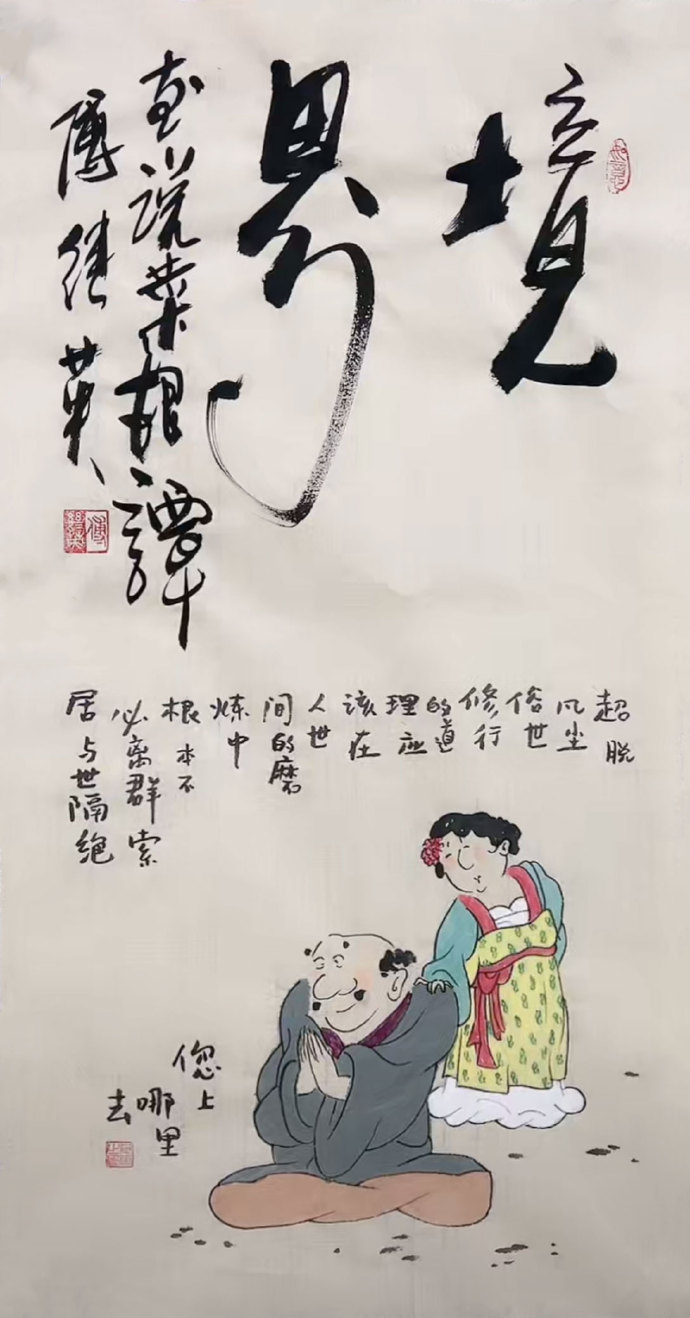 境
界
画说菜根譚
傅继英
超脱
风尘
俗世
修行
的道
理应
该在
人世
间的磨
炼中
根本不
必离群索
居与世隔绝
您上
哪里
去